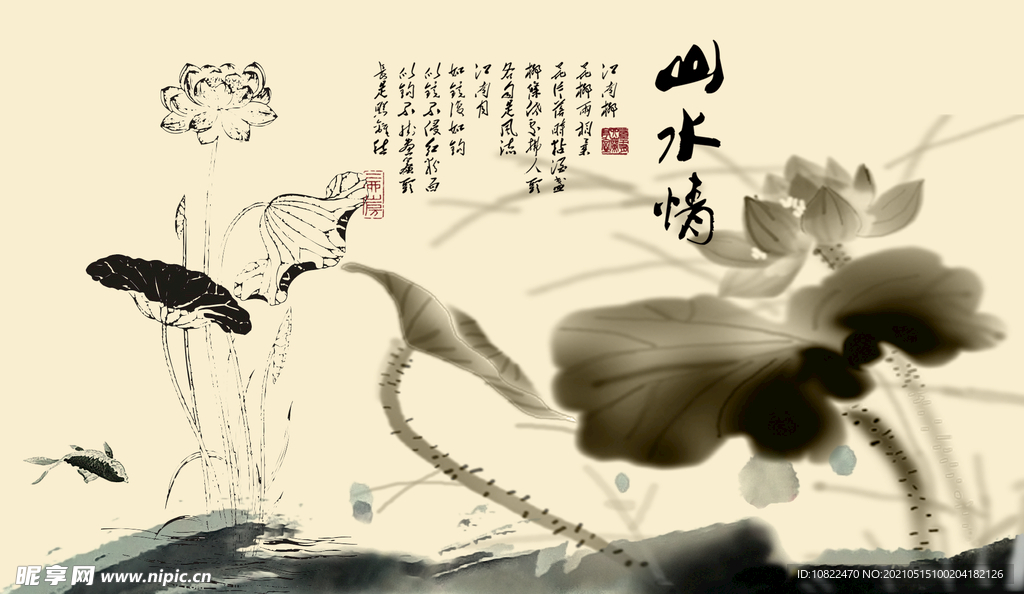 山水情
江南柳
花柳两相柔
花片落时粘酒盏
柳條低处拂人头
各自是风流
江南月
如镜复如钩
似镜不侵红粉面
似钩不挂画帘头
长是照离愁
昵享网 www.nipic.cn
ID:10822470 NO:20210515100204182126